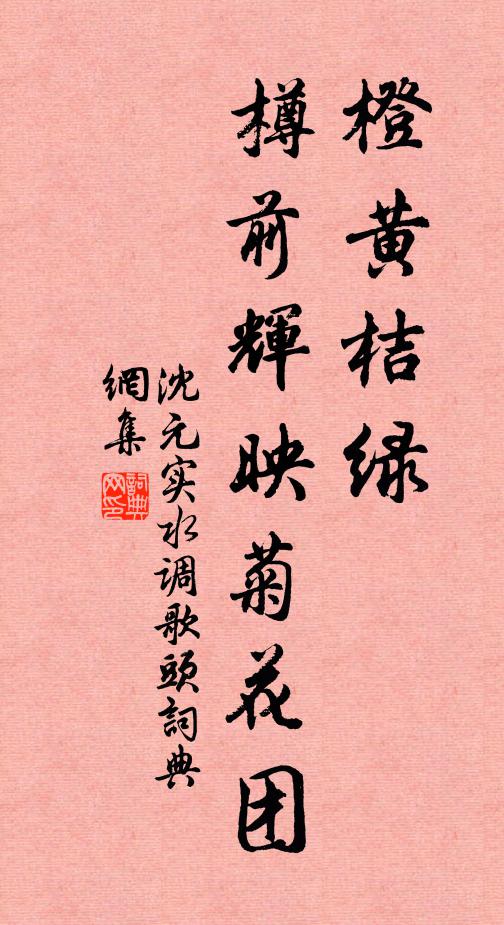 橙黄桔绿
樽前輝映菊花团
沈元实水调歌頭詞典
網集
詞典网印